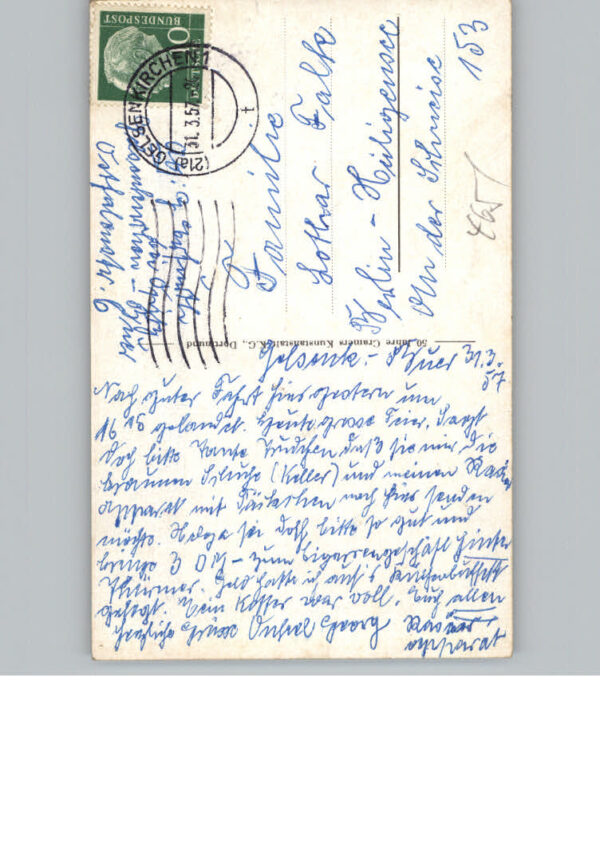 BUNDESPOST
10
(21a) GELSENKIRCHEN 1
31.3.57
t
Familie
Lothar Falke
Berlin - Heiligensee
An der Schneise 153
465/
Gelsenkirchen - Buer
6
50 Jahre Cramers Kunstanstalt K.G., Dortmund
Gelsenk.- Buer 31.3.
57
Nach guter Fahrt hier gestern um
16 05 gelandet. Heute grosse Feier. Sagt
doch bitte Tante Trudchen, daß sie mir die
braunen Schuhe (Keller) und meinen Rasier
apparat mit Täschchen nach hier senden
möchte. Helga sei doch bitte so gut und
bringe 3 DM - zum Zigarrengeschäft hinter
Thürmer. Geld hatte ich auf's Küchenbuffett
gelegt. Mein Koffer war voll. Euch allen
herzliche Grüsse Onkel Georg Rasier
apparat